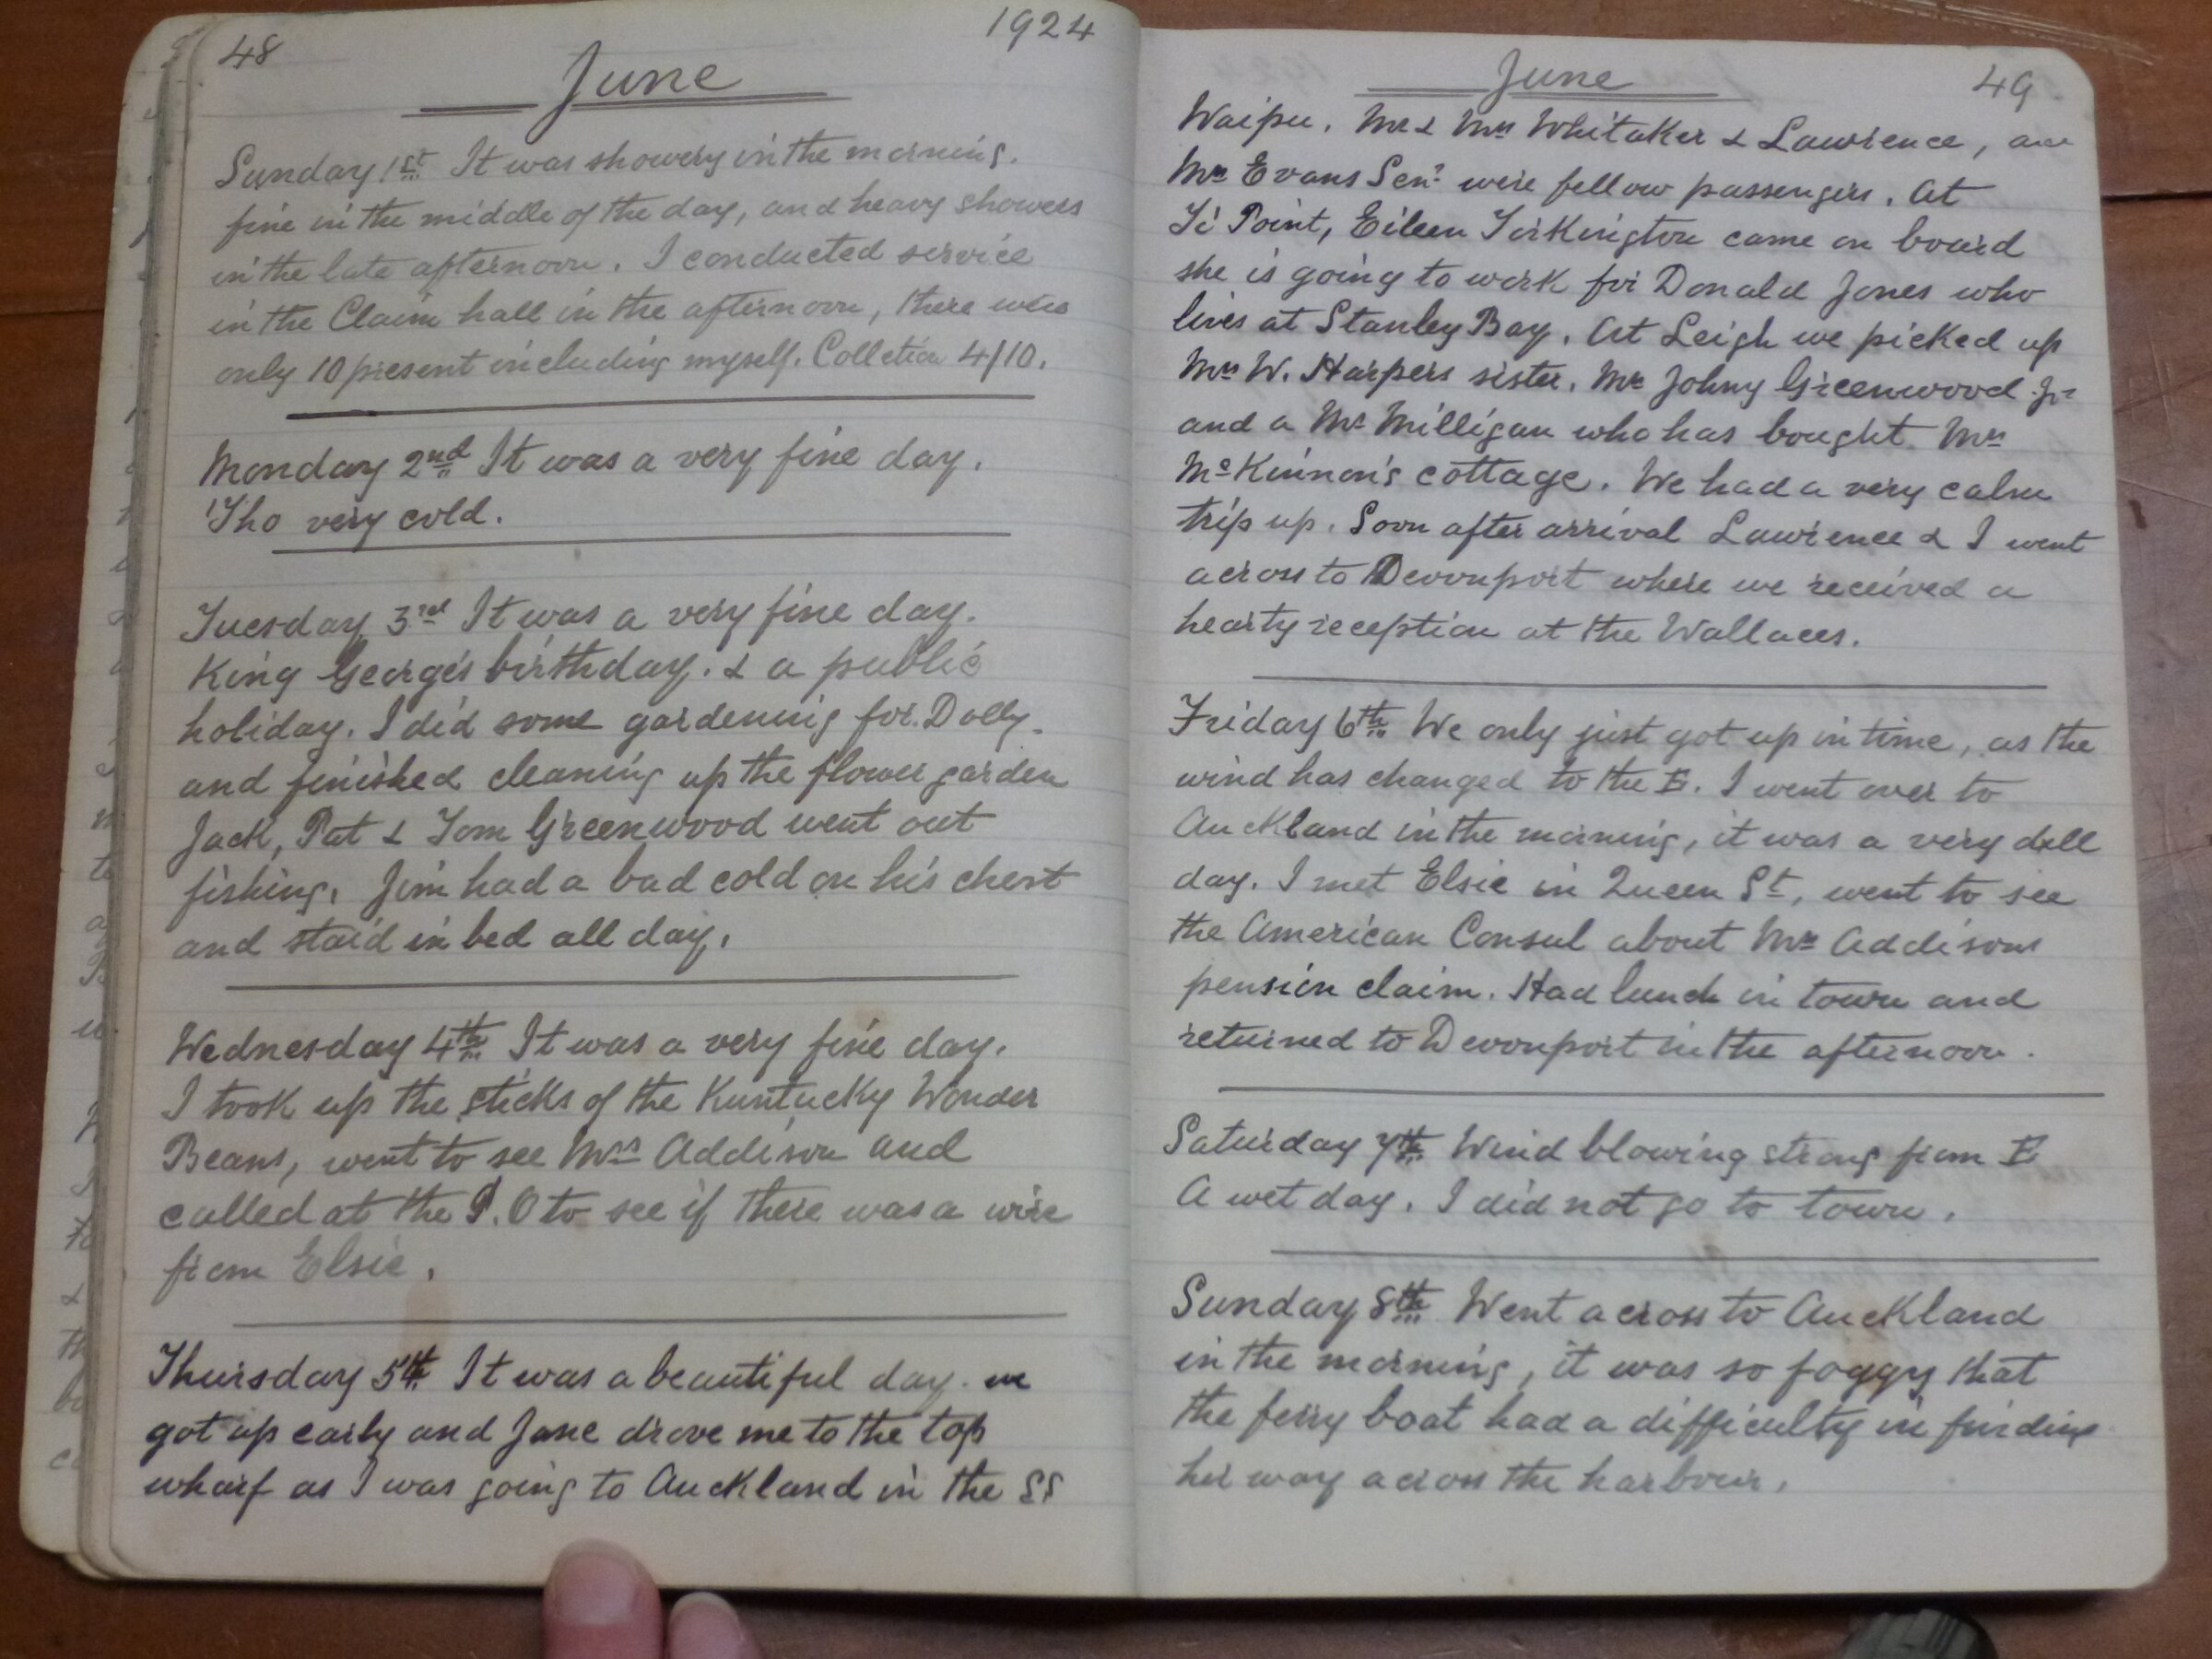 48
1924
June
Sunday 1st It was showery in the morning.
fine in the middle of the day, and heavy showers
in the late afternoon. I conducted service
in the Claim hall in the afternoon, there was
only 10 present including myself. Colletion 4/10.
Monday 2nd It was a very fine day.
'Tho very cold.
Tuesday 3rd It was a very fine day.
King George's birthday. & a public
holiday. I did some gardening for Dolly.
and finished cleaning up the flower garden
Jack, Pat & Tom Greenwood went out
fishing. Jim had a bad cold on his chest
and staid in bed all day.
Wednesday 4th It was a very fine day.
I took up the sticks of the Kuntucky Wonder
Beans, went to see Mrs Addison and
called at the P.O to see if there was a wire
from Elsie.
Thursday 5th It was a beautiful day. we
got up early and Jane drove me to the top
wharf as I was going to Auckland in the SS
June
49
Waipu. Mr & Mrs Whitaker & Lawrence, and
Mrs Evans Senr were fellow passengers. At
Ti Point, Eileen Torkington came on board
she is going to work for Donald Jones who
lives at Stanley Bay. At Leigh we picked up
Mrs W. Harpers sister. Mr Johny Greenwood Jr
and a Mr Milligan who has bought Mrs
McKinnon's cottage. We had a very calm
trip up. Soon after arrival Lawrence & I went
across to Devonport where we received a
hearty reception at the Wallaces.
Friday 6th We only just got up in time, as the
wind has changed to the E. I went over to
Auckland in the morning, it was a very dull
day. I met Elsie in Queen St, went to see
the American Consul about Mrs Addisons
pension claim. Had lunch in town and
returned to Devonport in the afternoon.
Saturday 7th Wind blowing strong from E
A wet day. I did not go to town.
Sunday 8th Went across to Auckland
in the morning, it was so foggy that
the ferry boat had a difficulty in finding
her way across the harbour.